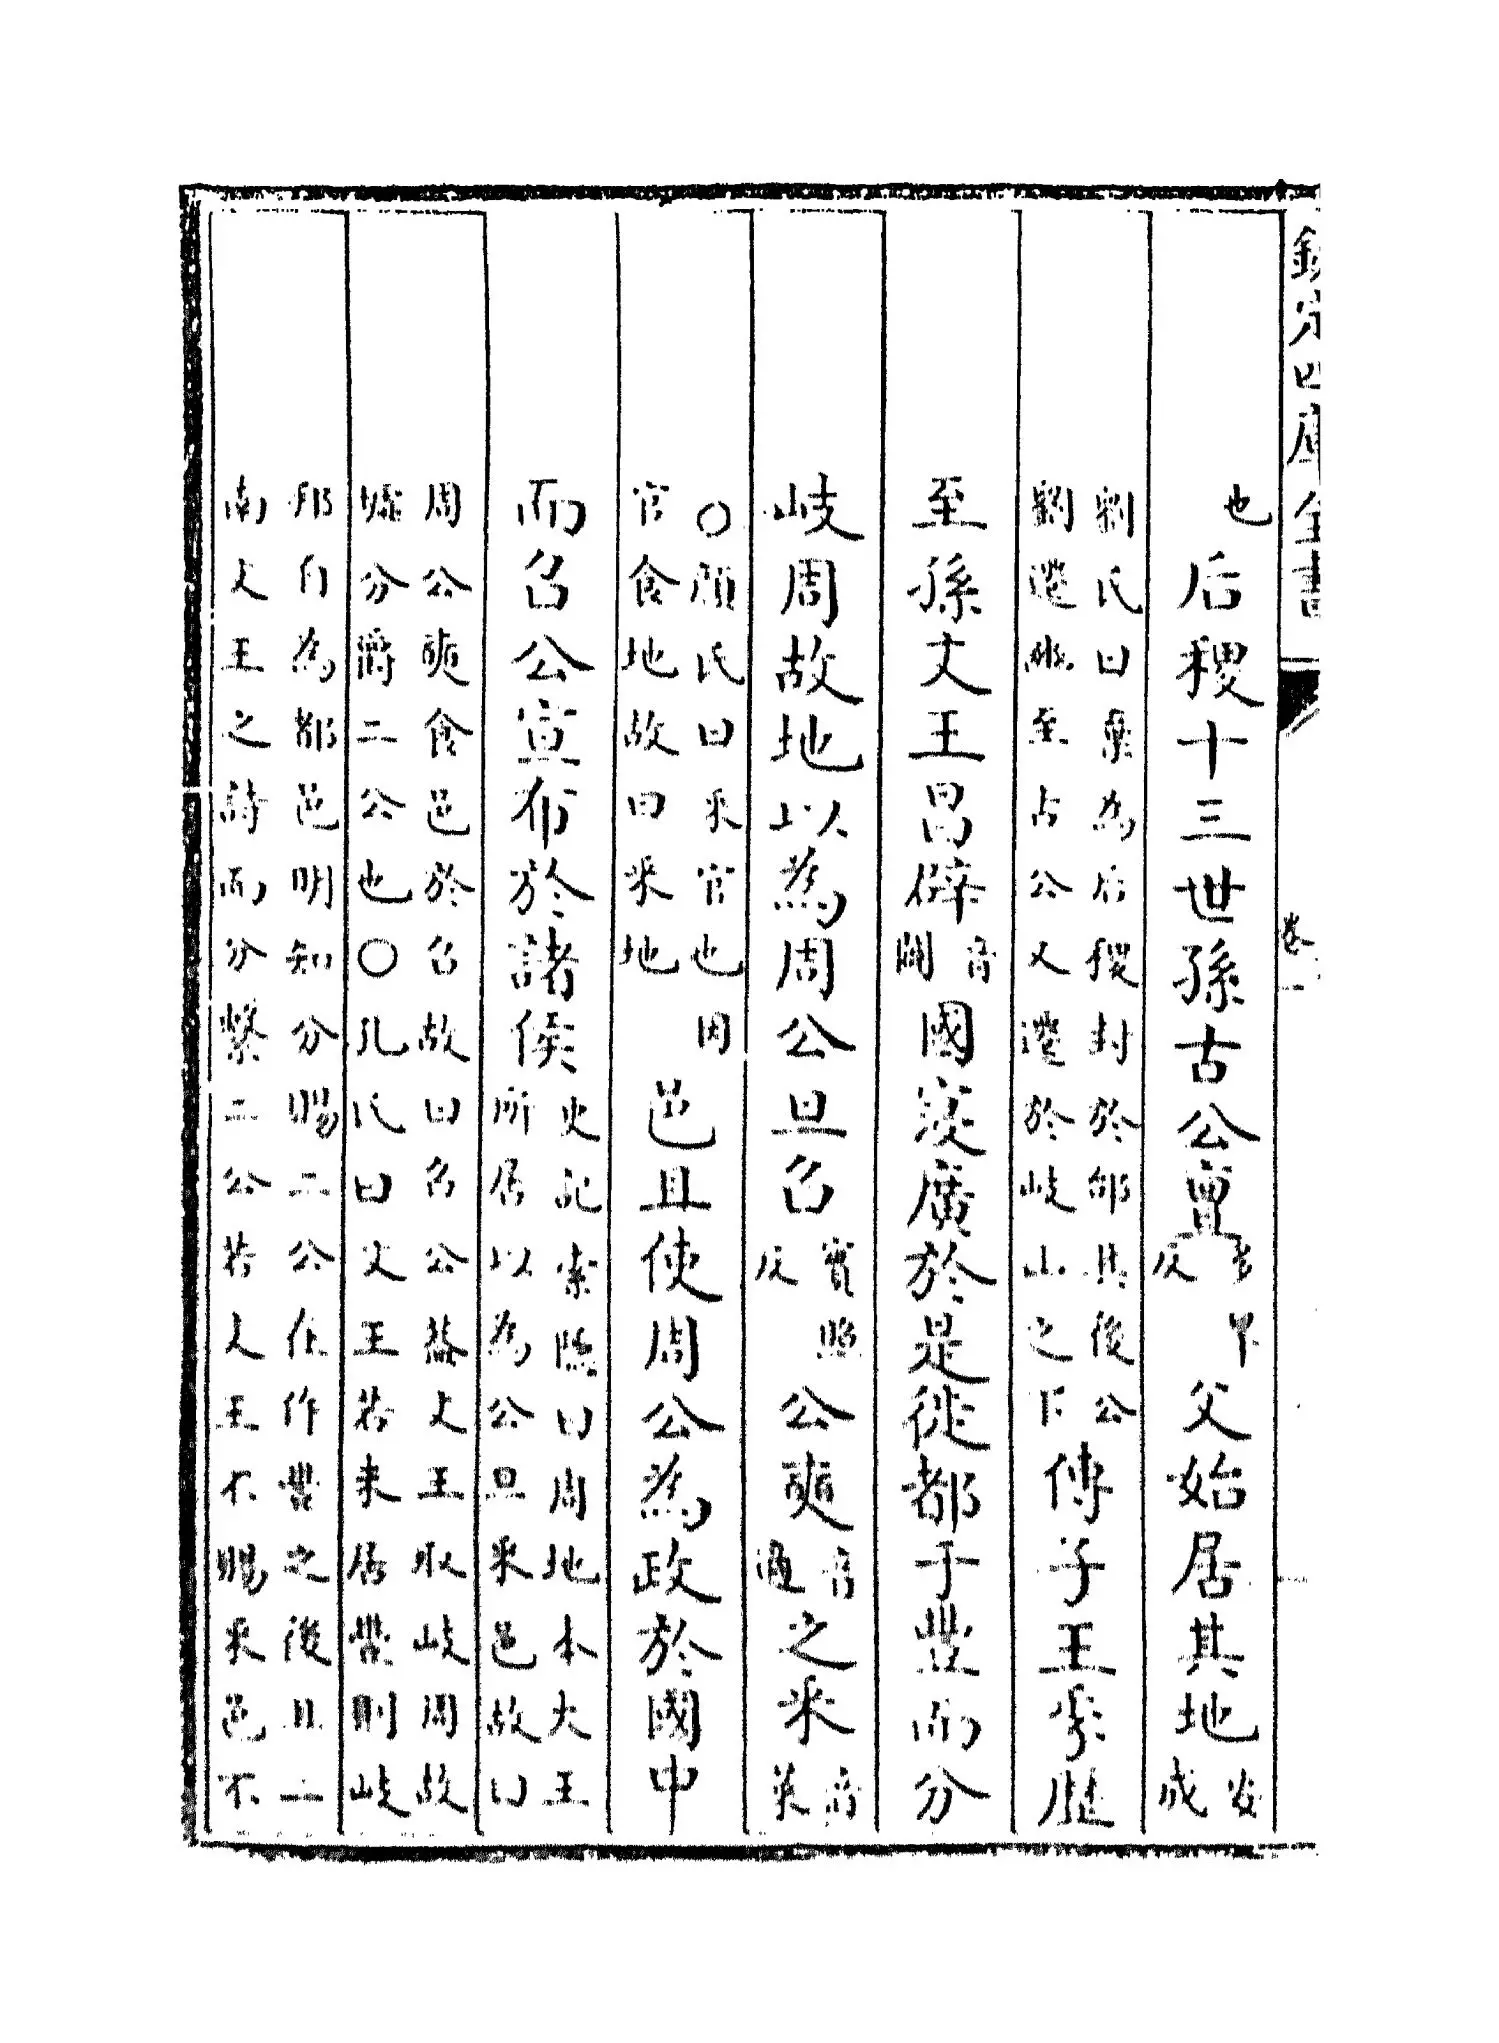 欽定四庫全書
卷一
也后稷十三世孫古公亶多旱反父始居其地安成
劉氏曰棄為后稷封於邰其後公
劉遷豳至古公又遷於岐山之下傳子王季歷
至孫文王昌辟音闢國寖廣於是徙都于豐而分
岐周故地以為周公旦召實照反公奭音適之采音菜
○顔氏曰采官也因
官食地故曰采地邑且使周公為政於國中
而召公宣布於諸侯史記索隱曰周地本大王
所居以為公旦采邑故曰
周公奭食邑於召故曰召公葢文王取岐周故
墟分爵二公也○孔氏曰文王若未居豐則岐
邦自為都邑明知分賜二公在作豐之後且二
南文王之詩而分繫二公若文王不賜采邑不